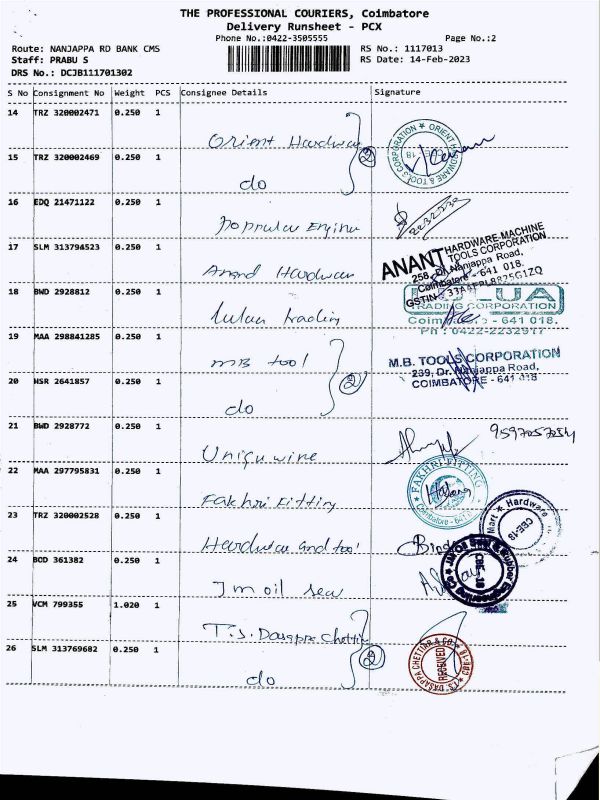 THE PROFESSIONAL COURIERS, Coimbatore
Delivery Runsheet - PCX
Phone No.:0422-3505555 Page No.:2
Route: NANJAPPA RD BANK CMS RS No.: 1117013
Staff: PRABU S RS Date: 14-Feb-2023
DRS No.: DCJB111701302
S No Consignment No Weight PCS Consignee Details Signature
14 TRZ 320002471 0.250 1
Orient Hardwar
ORIENT HARDWARE & TOOLS CORPORATION
15 TRZ 320002469 0.250 1 2
do
16 EDQ 21471122 0.250 1
Popular Engine
17 SLM 313794523 0.250 1
Anand Hardwar
ANANT HARDWARE-MACHINE
TOOLS CORPORATION
258, Dr. Nanjappa Road,
Coimbatore - 641 018.
18 BWD 2928812 0.250 1
GSTIN
Lulua trading
LULUA
TRADING CORPORATION
Coimbatore - 641 018.
Ph : 0422-2232917
19 MAA 298841285 0.250 1
MB tool
M.B. TOOLS CORPORATION
239, Dr. Nanjappa Road,
COIMBATORE - 641 018
20 HSR 2641857 0.250 1 2
do
21 BWD 2928772 0.250 1
Uniqu wine
22 MAA 297795831 0.250 1
Fakhri Fitting
FAKHRI FITTING
Coimbatore
23 TRZ 320002528 0.250 1
Hardwar and tool
Mart * Hardware
CBE-18
24 BCD 361382 0.250 1
Jm oil sea
Rubber Engineering Co
CBE-18
25 VCM 799355 1.020 1
T.S. Dasappa Chettiar
26 SLM 313769682 0.250 1 2
do
T.S. DASAPPA CHETTIAR & CO
RECEIVED